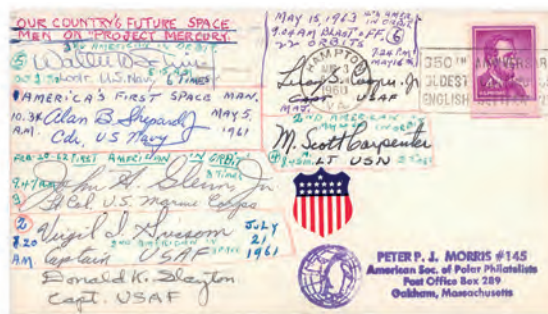 OUR COUNTRY'S FUTURE SPACE
MEN ON "PROJECT MERCURY.
AMERICAN IN ORBIT
⑤ Walter M. Schirra
Lcdr. U.S. Navy 6 TIMES
AMERICA'S FIRST SPACE MAN.
10.34 Alan B. Shepard Jr MAY 5,
A.M. Cdr, US Navy 1961
FEB-20-62 FIRST AMERICAN IN ORBIT
3 TIMES
9.47 AM John H. Glenn Jr.
3 Lt Col. U.S. Marine Corps
② Virgil I. Grissom JULY
8.20 2ND AMERICAN IN SPACE 21
AM Captain USAF 1961
Donald K. Slayton
Capt. USAF
MAY 15, 1963 AMER.
IN ORBIT
9.04 AM BLAST OFF ⑥
22 ORBITS
7.24 P.M.
MAY 16
Leroy G. Cooper, Jr
Capt USAF
MAJ.
2ND AMERICAN
IN ORBIT
M. Scott Carpenter
LT USN 3 TIMES
HAMPTON
1960
VA.
350TH ANNIVERSARY
OLDEST
ENGLISH
PETER P. J. MORRIS #145
American Soc. of Polar Philatelists
Post Office Box 289
Oakham, Massachusetts